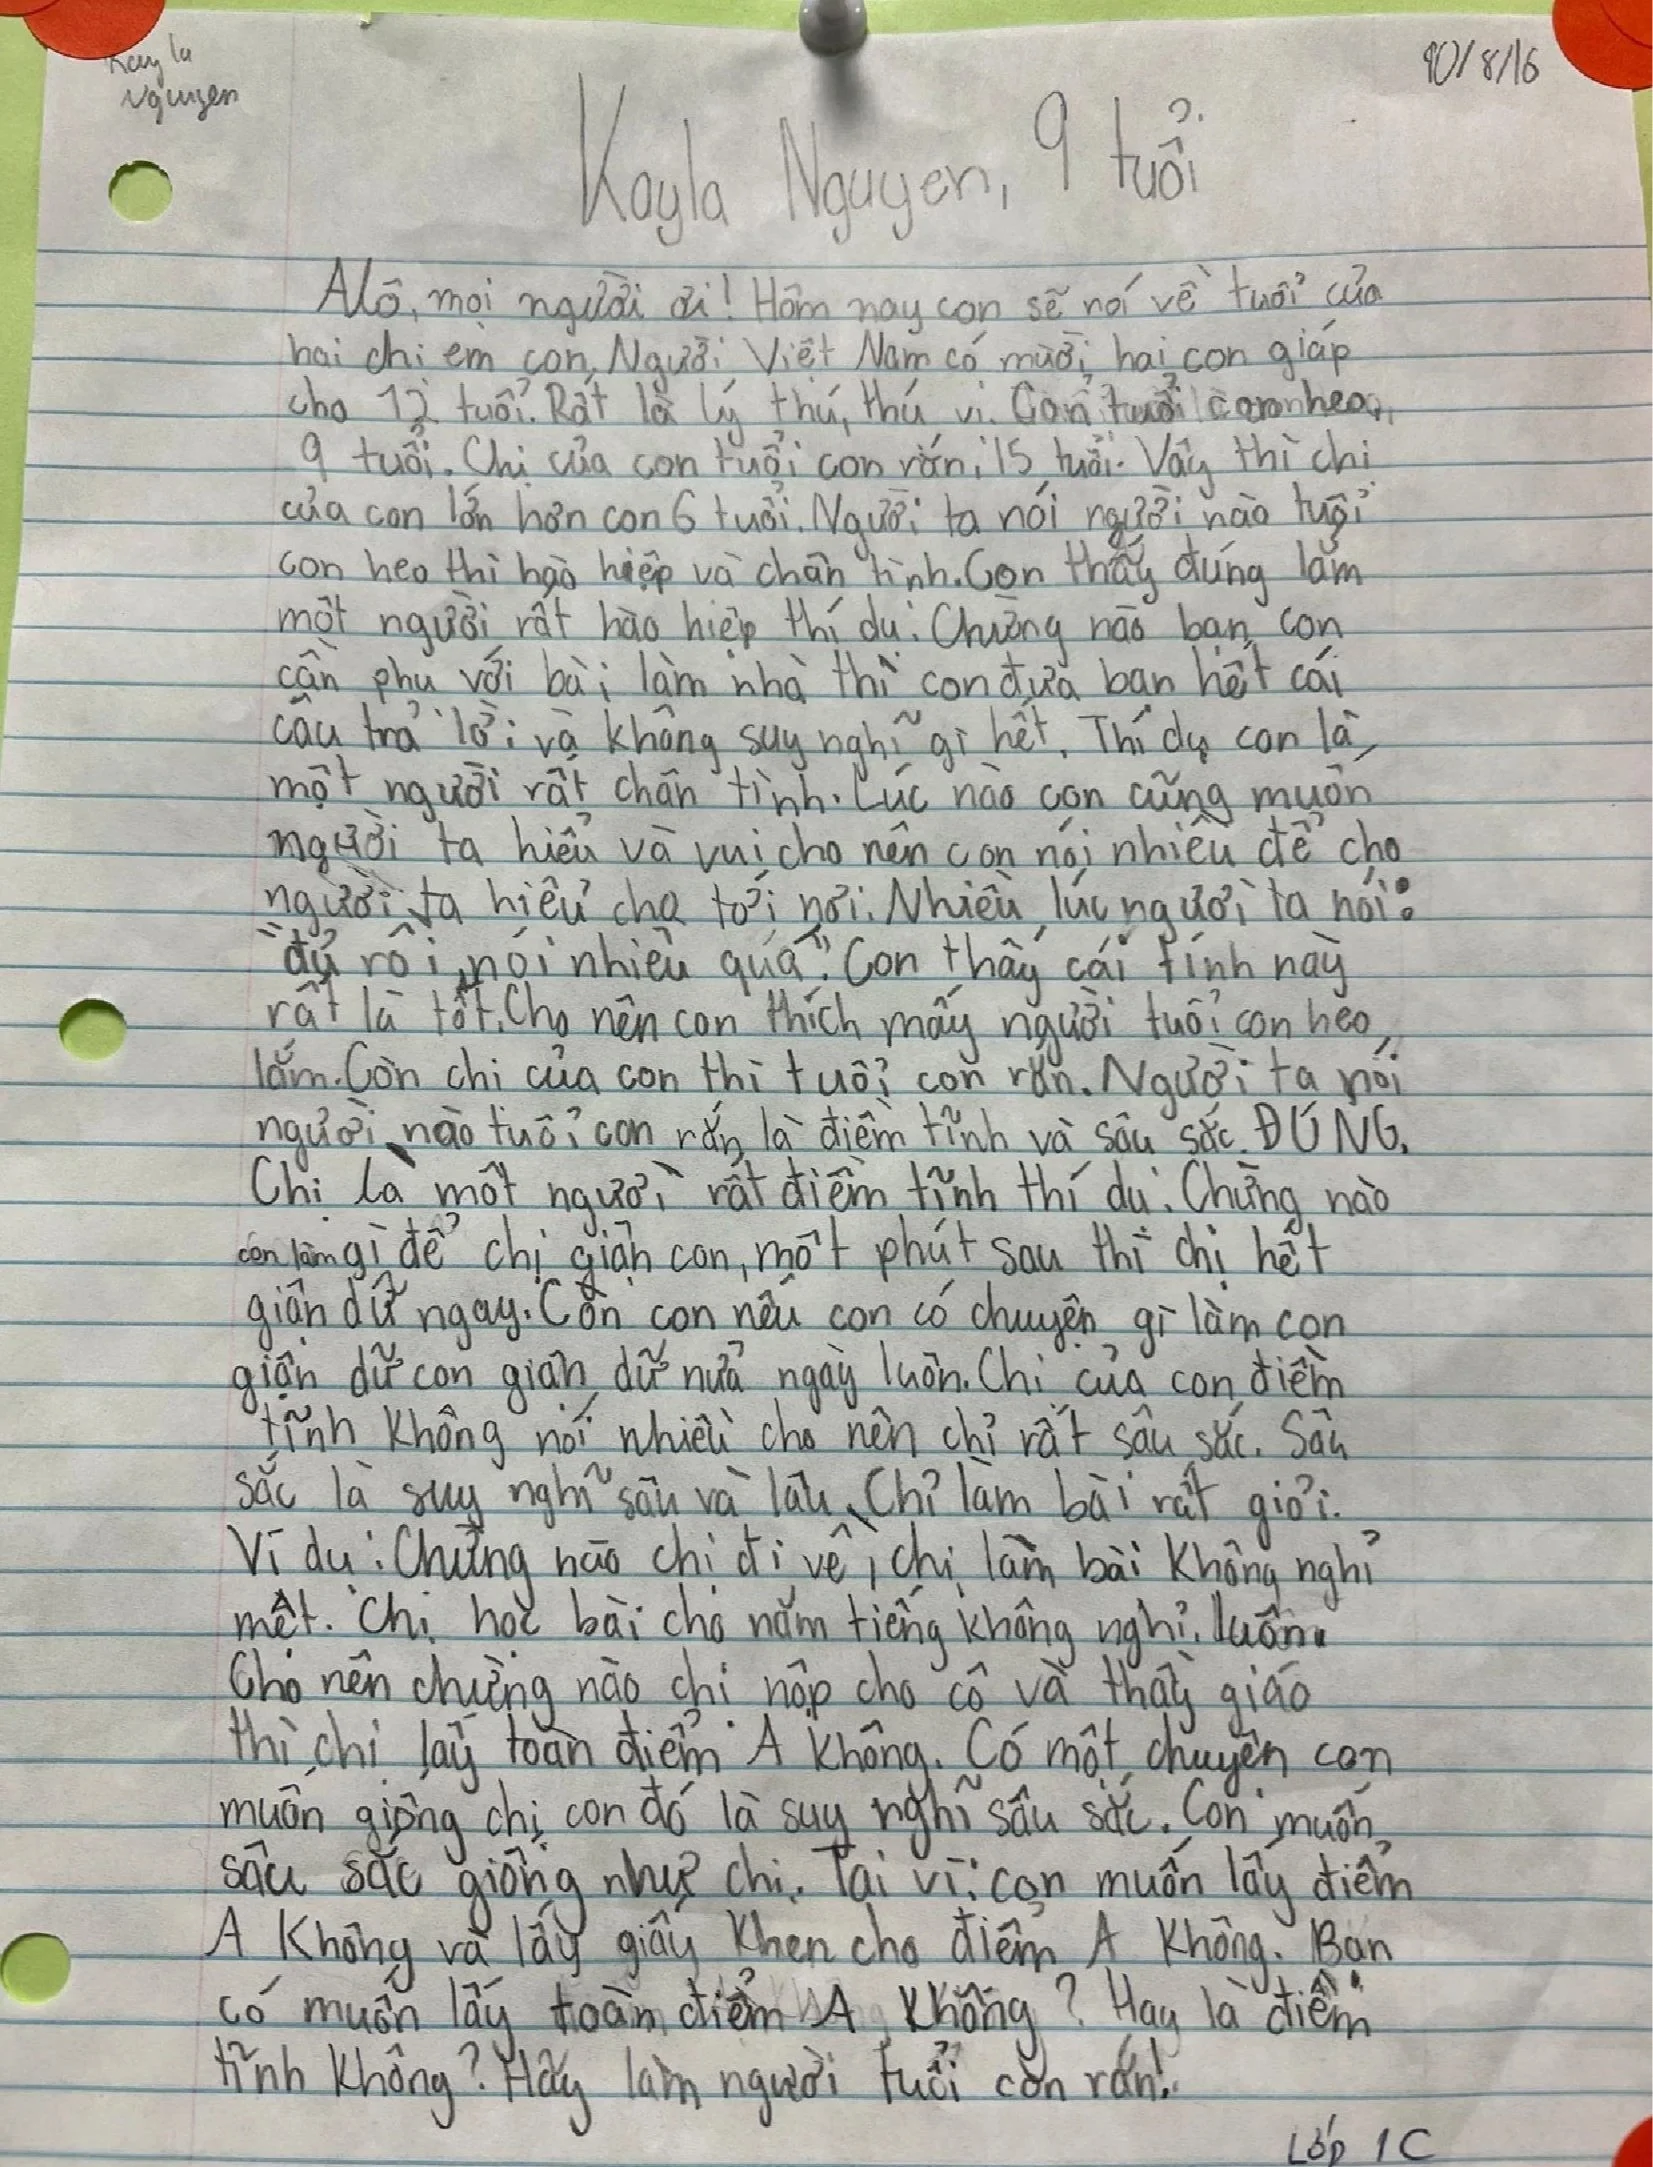 Kayla
Nguyen
10/8/16
Kayla Nguyen, 9 tuổi
Alô, mọi người ơi! Hôm nay con sẽ nói về tuổi của
hai chi em con. Người Việt Nam có mười hai con giáp
cho 12 tuổi. Rất là lý thú, thú vị. Con tuổi con heo,
9 tuổi. Chị của con tuổi con rắn, 15 tuổi. Vậy thì chi
của con lớn hơn con 6 tuổi. Người ta nói người nào tuổi
con heo thì hào hiệp và chân tình. Con thấy đúng lắm
một người rất hào hiệp thí dụ: Chừng nào bạn con
cần phụ với bài làm nhà thì con đưa bạn hết cái
câu trả lời và không suy nghĩ gì hết. Thí dụ con là
một người rất chân tình. Lúc nào con cũng muốn
người ta hiểu và vui cho nên con nói nhiều để cho
người ta hiểu cho tới nơi. Nhiều lúc người ta nói:
"đủ rồi, nói nhiều quá". Con thấy cái tính này
rất là tốt. Cho nên con thích mấy người tuổi con heo
lắm. Còn chi của con thì tuổi con rắn. Người ta nói
người nào tuổi con rắn là điềm tĩnh và sâu sắc. ĐÚNG.
Chị là một người rất điềm tĩnh thí dụ: Chừng nào
con làm gì để chị giận con, một phút sau thì chị hết
giận dữ ngay. Còn con nếu con có chuyện gì làm con
giận dữ con giận dữ nửa ngày luôn. Chi của con điềm
tĩnh không nói nhiều cho nên chỉ rất sâu sắc. Sâu
sắc là suy nghĩ sâu và lâu. Chỉ làm bài rất giỏi.
Ví dụ: Chừng nào chi đi về, chị làm bài không nghỉ
mệt. Chị học bài cho năm tiếng không nghỉ luôn.
Cho nên chừng nào chi nộp cho cô và thầy giáo
thì chi lấy toàn điểm A không. Có một chuyện con
muốn giống chị con đó là suy nghĩ sâu sắc. Con muốn
sâu sắc giống như chi. Tại vì: con muốn lấy điểm
A không và lấy giấy khen cho điểm A không. Bạn
có muốn lấy toàn điểm A không? Hay là điềm
tĩnh không? Hãy làm người tuổi con rắn!
Lớp 1C